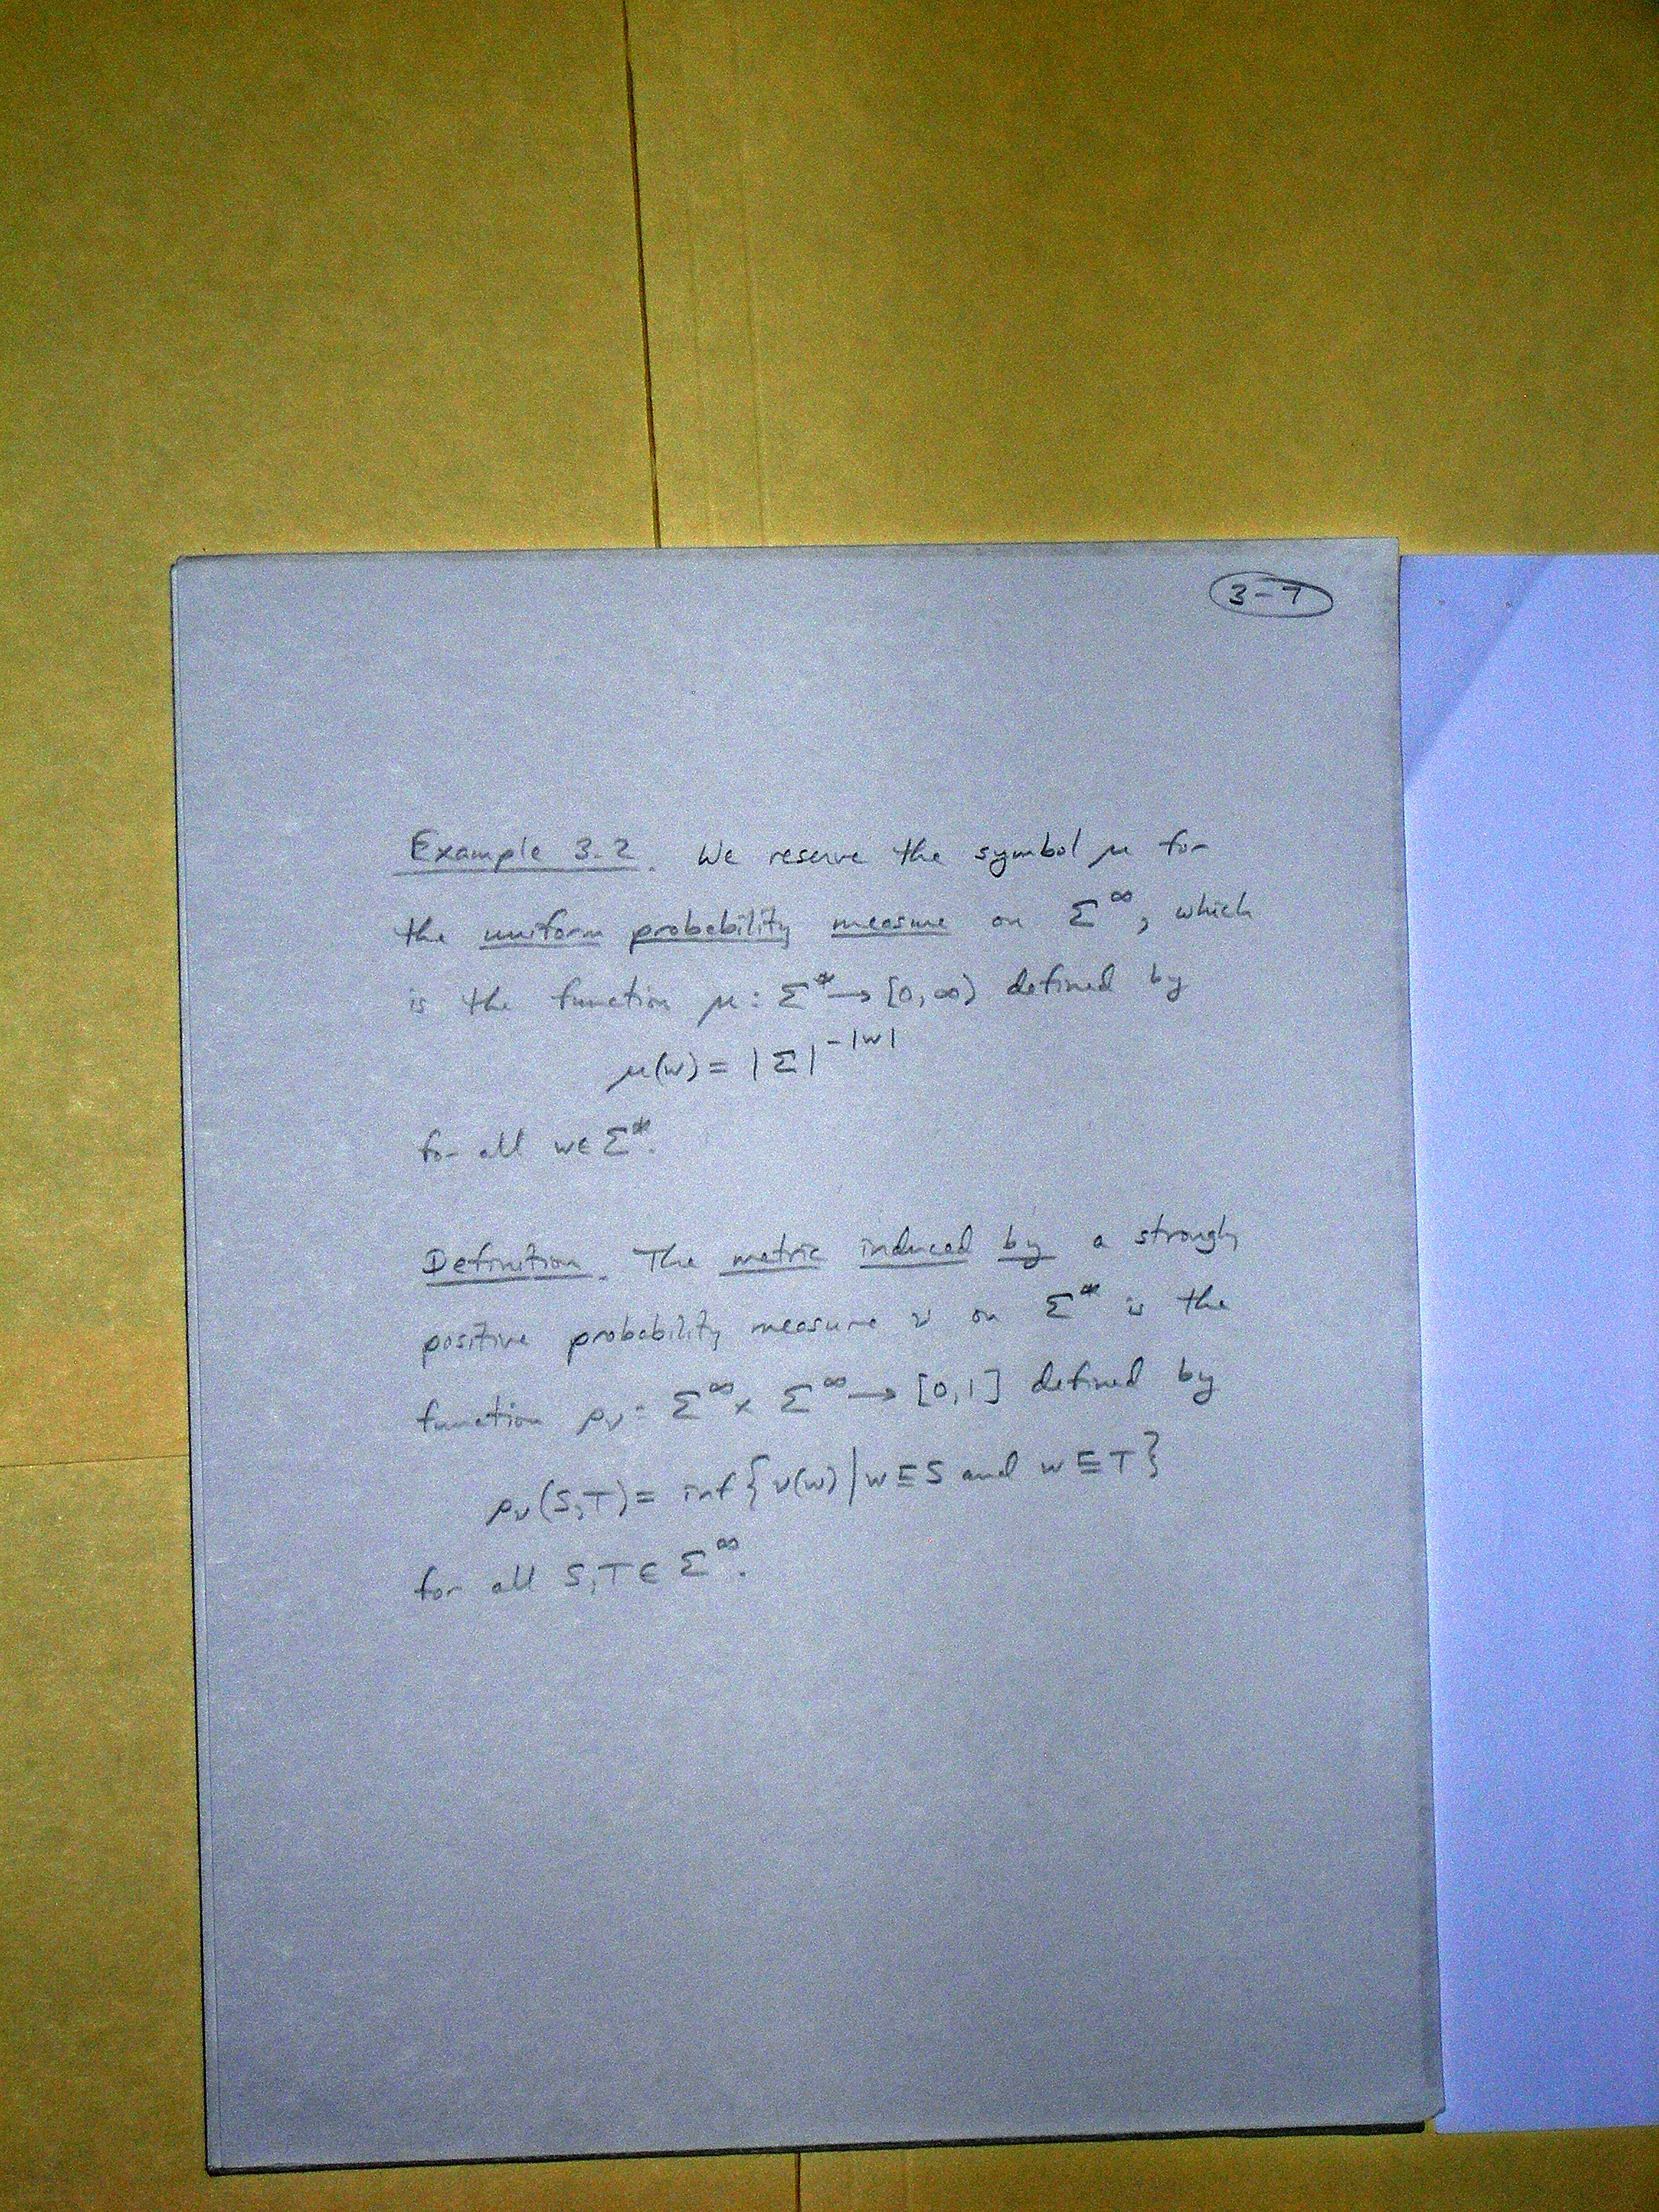 3-7
Example 3.2. We reserve the symbol μ for
the uniform probability measure on Σ^∞, which
is the function μ: Σ* → [0,∞) defined by
μ(w) = |Σ|^-|w|
for all w∈Σ*.
Definition. The metric induced by a strongly
positive probability measure ν on Σ* is the
function ρ_ν: Σ^∞ × Σ^∞ → [0,1] defined by
ρ_ν(S,T) = inf{ν(w) | w⊑S and w⊑T}
for all S,T ∈ Σ^∞.